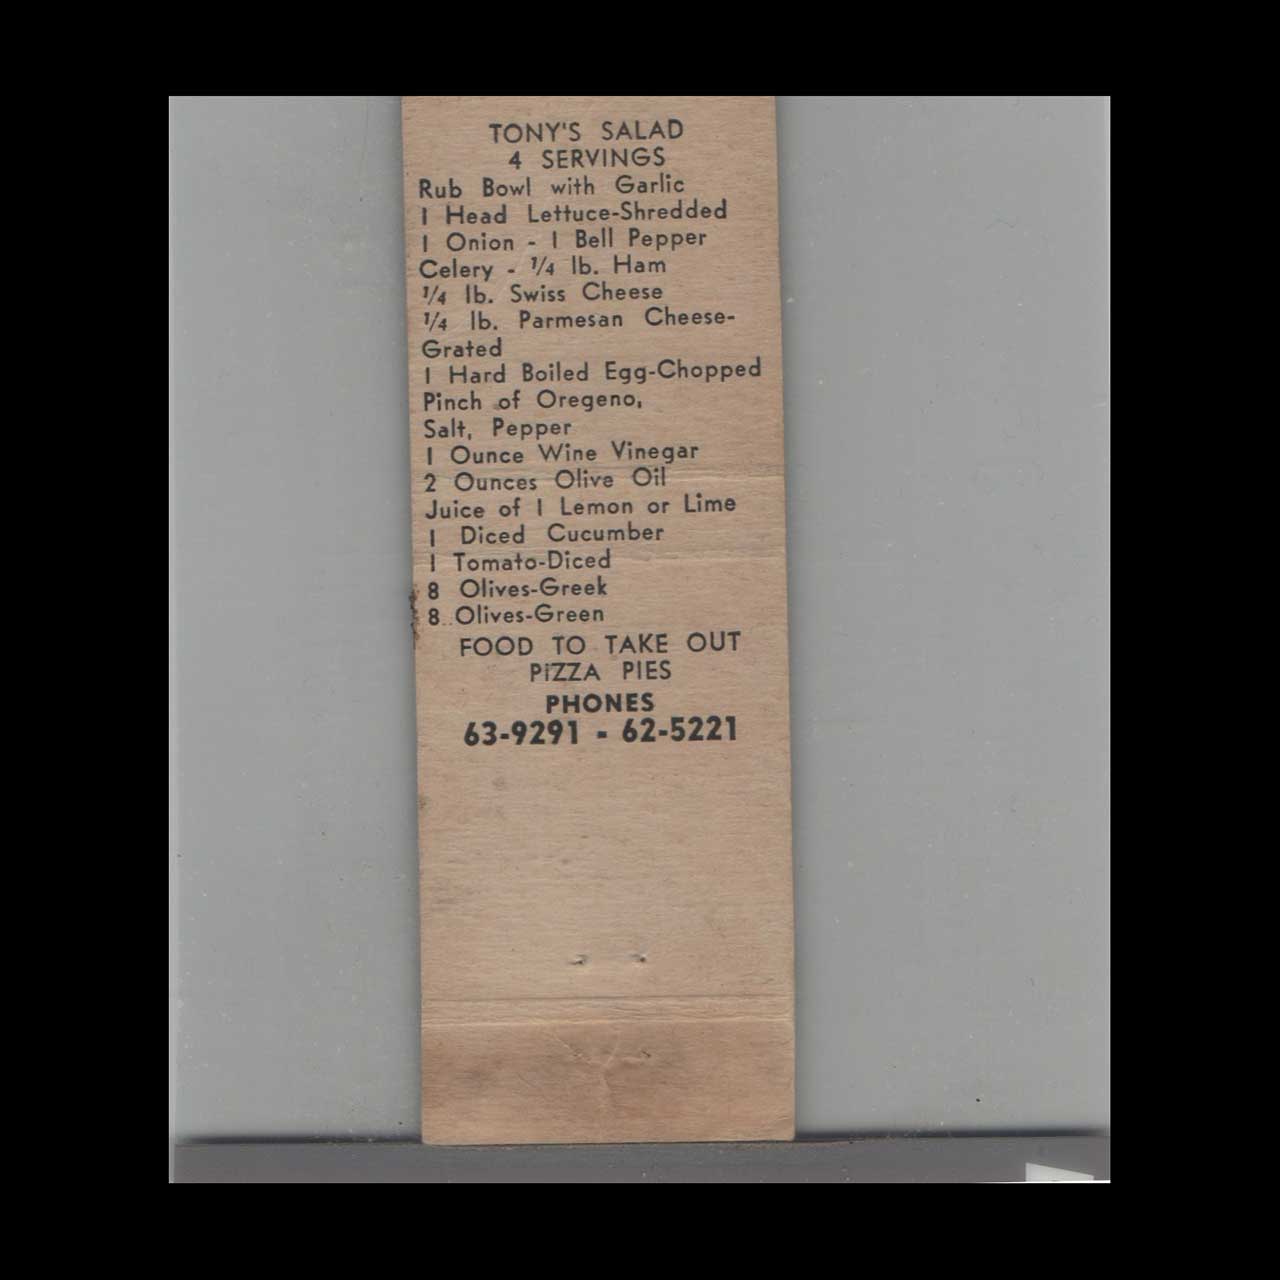 TONY'S SALAD
4 SERVINGS
Rub Bowl with Garlic
1 Head Lettuce-Shredded
1 Onion - 1 Bell Pepper
Celery - 1/4 lb. Ham
1/4 lb. Swiss Cheese
1/4 lb. Parmesan Cheese-
Grated
1 Hard Boiled Egg-Chopped
Pinch of Oregeno,
Salt, Pepper
1 Ounce Wine Vinegar
2 Ounces Olive Oil
Juice of 1 Lemon or Lime
1 Diced Cucumber
1 Tomato-Diced
8 Olives-Greek
8 Olives-Green
FOOD TO TAKE OUT
PIZZA PIES
PHONES
63-9291 - 62-5221